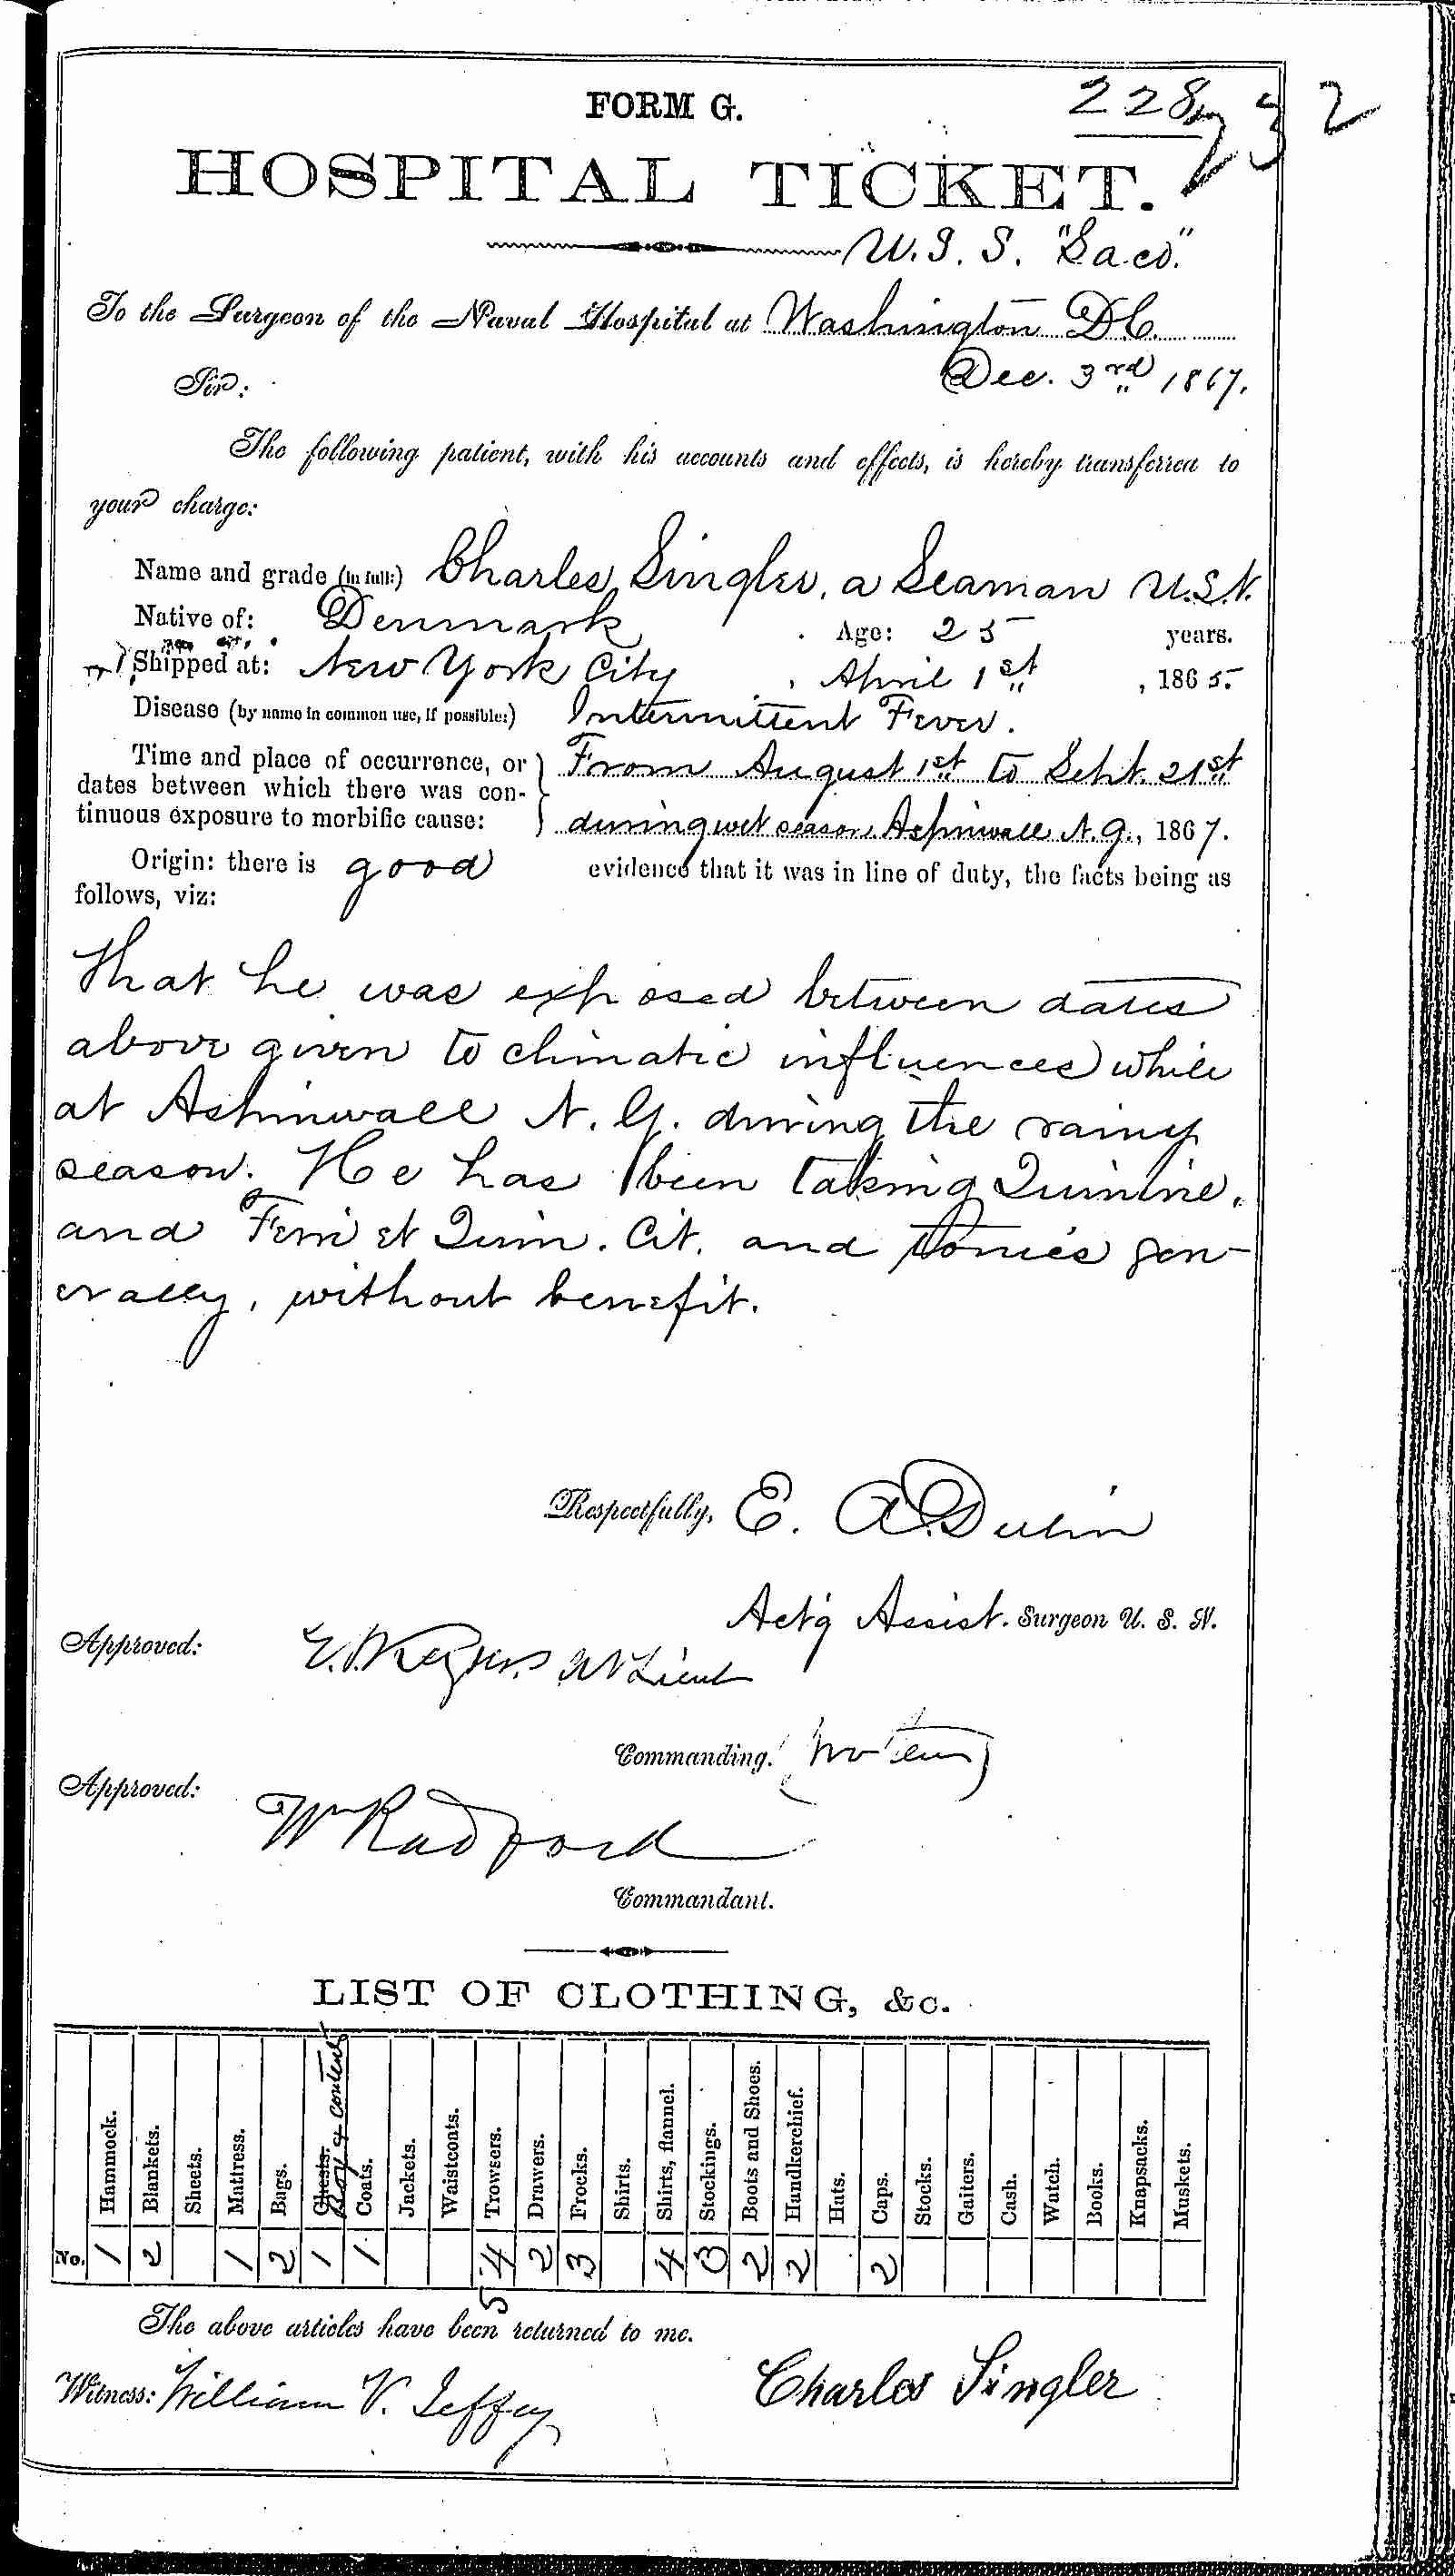 FORM G.
228
232
HOSPITAL TICKET.
U.S.S. "Saco."
To the Surgeon of the Naval Hospital at Washington D.C.
Sir:
Dec. 3rd 1867.
The following patient, with his accounts and effects, is hereby transferred to
your charge:
Name and grade (in full:) Charles Singler, a Seaman U.S.N.
Native of: Denmark Age: 25 years.
Shipped at: New York City, April 1st, 1865.
Disease (by name in common use, if possible:) Intermittent Fever.
Time and place of occurrence, or dates between which there was con-tinuous exposure to morbific cause: From August 1st to Sept. 21st
during wet season, Aspinwall N.G., 1867.
Origin: there is good evidence that it was in line of duty, the facts being as
follows, viz:
That he was exposed between dates
above given to climatic influences while
at Aspinwall N.G. during the rainy
season. He has been taking Quinine,
and Ferri et Quin. Cit. and tonics gen-
erally, without benefit.
Respectfully, E. A. Dulin
Act'g Assist. Surgeon U. S. N.
Approved:
Lieut
Commanding.
Approved:
Wm Radford
Commandant.
LIST OF CLOTHING, &c.
Hammock. Blankets. Sheets. Mattress. Bags. Chests. Box & contents Coats. Jackets. Waistcoats. Trowsers. Drawers. Frocks. Shirts. Shirts, flannel. Stockings. Boots and Shoes. Handkerchief. Hats. Caps. Stocks. Gaiters. Cash. Watch. Books. Knapsacks. Muskets.
No. 1 2 1 2 1 1 4 2 3 4 3 2 2 2
5
The above articles have been returned to me.
Witness: William V. Jeffey Charles Singler